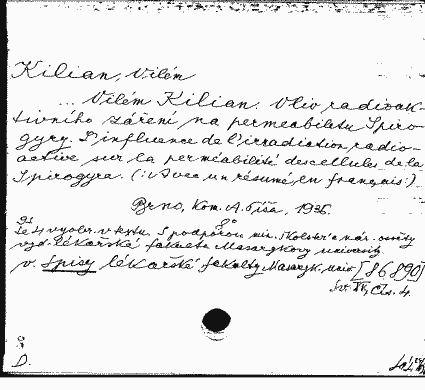 Kilian, Vilém
... Vilém Kilian. Vliv radioak-
tivního záření na permeabilitu Spiro-
gyry. L'influence de l'irradiation radio-
active sur la perméabilité des cellules de la
Spirogyra. (:Avec un résumé en français:)
Brno, Kom. A. Píša, 1936.
vyobr. v textu. S podporou min. školství a nár. osvěty
vyd. lékařská fakulta Masarykovy university.
v. Spisy lékařské fakulty Masaryk. univ. [86.890]
Sv. XV, čís. 4.
D.